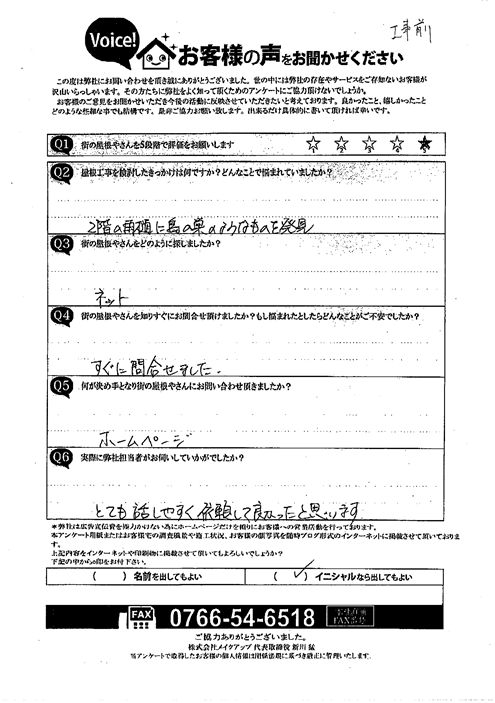 工事前
Voice!
お客様の声をお聞かせください
この度は弊社にお問い合わせを頂き誠にありがとうございました。世の中には弊社の存在やサービスをご存知ないお客様が
沢山いらっしゃいます。その方たちに弊社をよく知って頂くためのアンケートにご協力頂けないでしょうか。
お客様のご意見をお聞かせいただき今後の活動に反映させていただきたいと考えております。良かったこと、嬉しかったこと
どのような些細な事でも結構です。是非ご協力お願い致します。出来るだけ具体的に書いて頂ければ幸いです。
Q1 街の屋根やさんを5段階で評価をお願いします
Q2 屋根工事を検討したきっかけは何ですか?どんなことで悩まれていましたか?
2階の雨樋に鳥の巣のようなものを発見
Q3 街の屋根やさんをどのように探しましたか?
ネット
Q4 街の屋根やさんを知りすぐにお問合せ頂けましたか?もし悩まれたとしたらどんなことがご不安でしたか?
すぐに問合せました.
Q5 何が決め手となり街の屋根やさんにお問い合わせ頂きましたか?
ホームページ
Q6 実際に弊社担当者がお伺いしていかがでしたか?
とても話しやすく依頼して良かったと思います
*弊社は広告宣伝費を極力かけない為にホームページだけを頼りにお客様への営業活動を行っております。
本アンケート用紙またはお客様宅の調査風景や施工状況、お客様の顔写真を随時ブログ形式のインターネットに掲載させて頂いております。
上記内容をインターネットや印刷物に掲載させて頂いてもよろしいでしょうか?
下記の中から○印をお付下さい。
( ) 名前を出してもよい
(✓) イニシャルなら出してもよい
FAX 0766-54-6518
ご協力ありがとうございました。
株式会社メイクアップ 代表取締役 新川 猛
当アンケートで取得したお客様の個人情報は関係法規に基づき適正に管理いたします.